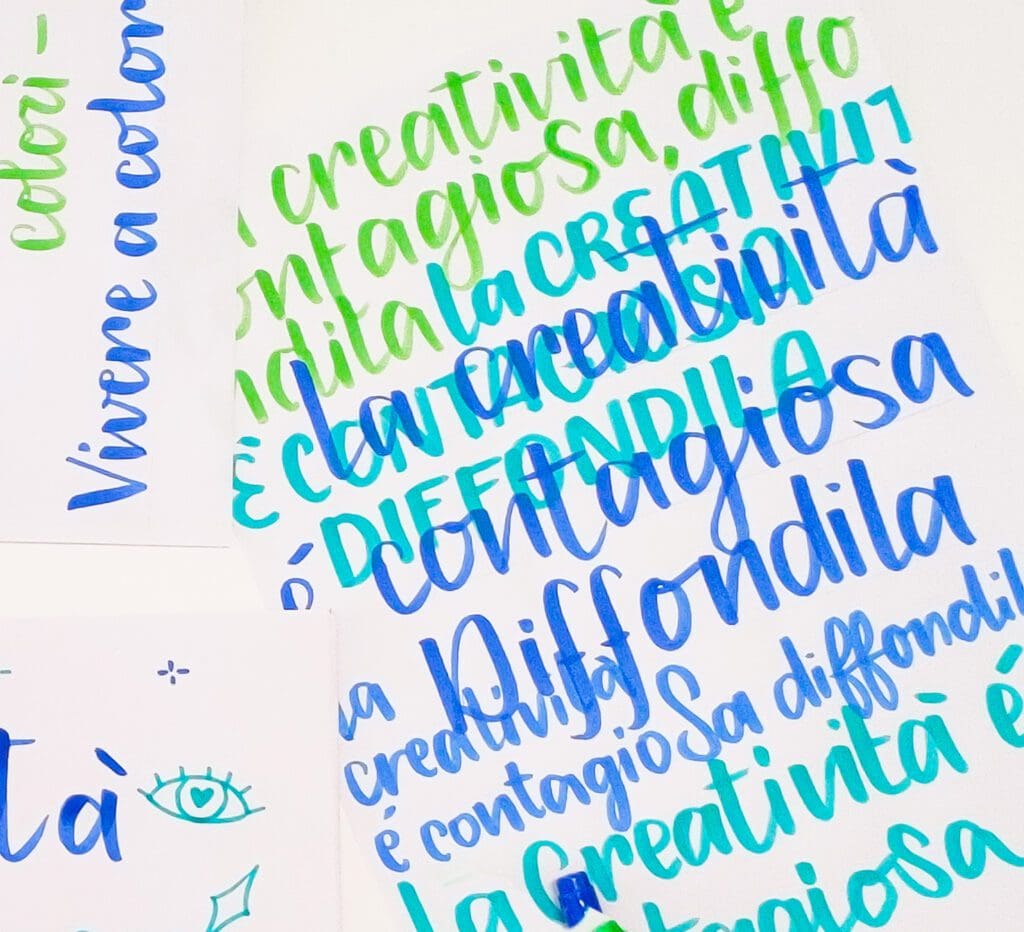 colori -
Vivere a color
creatività è
ontagiosa, diffo
ndila
la CREATIVIT
È CONTAGIOSA
DIFFONDILA
La creatività
è contagiosa
Diffondila
la
creatività
é contagiosa diffondil
la creatività é
tagiosa
tà